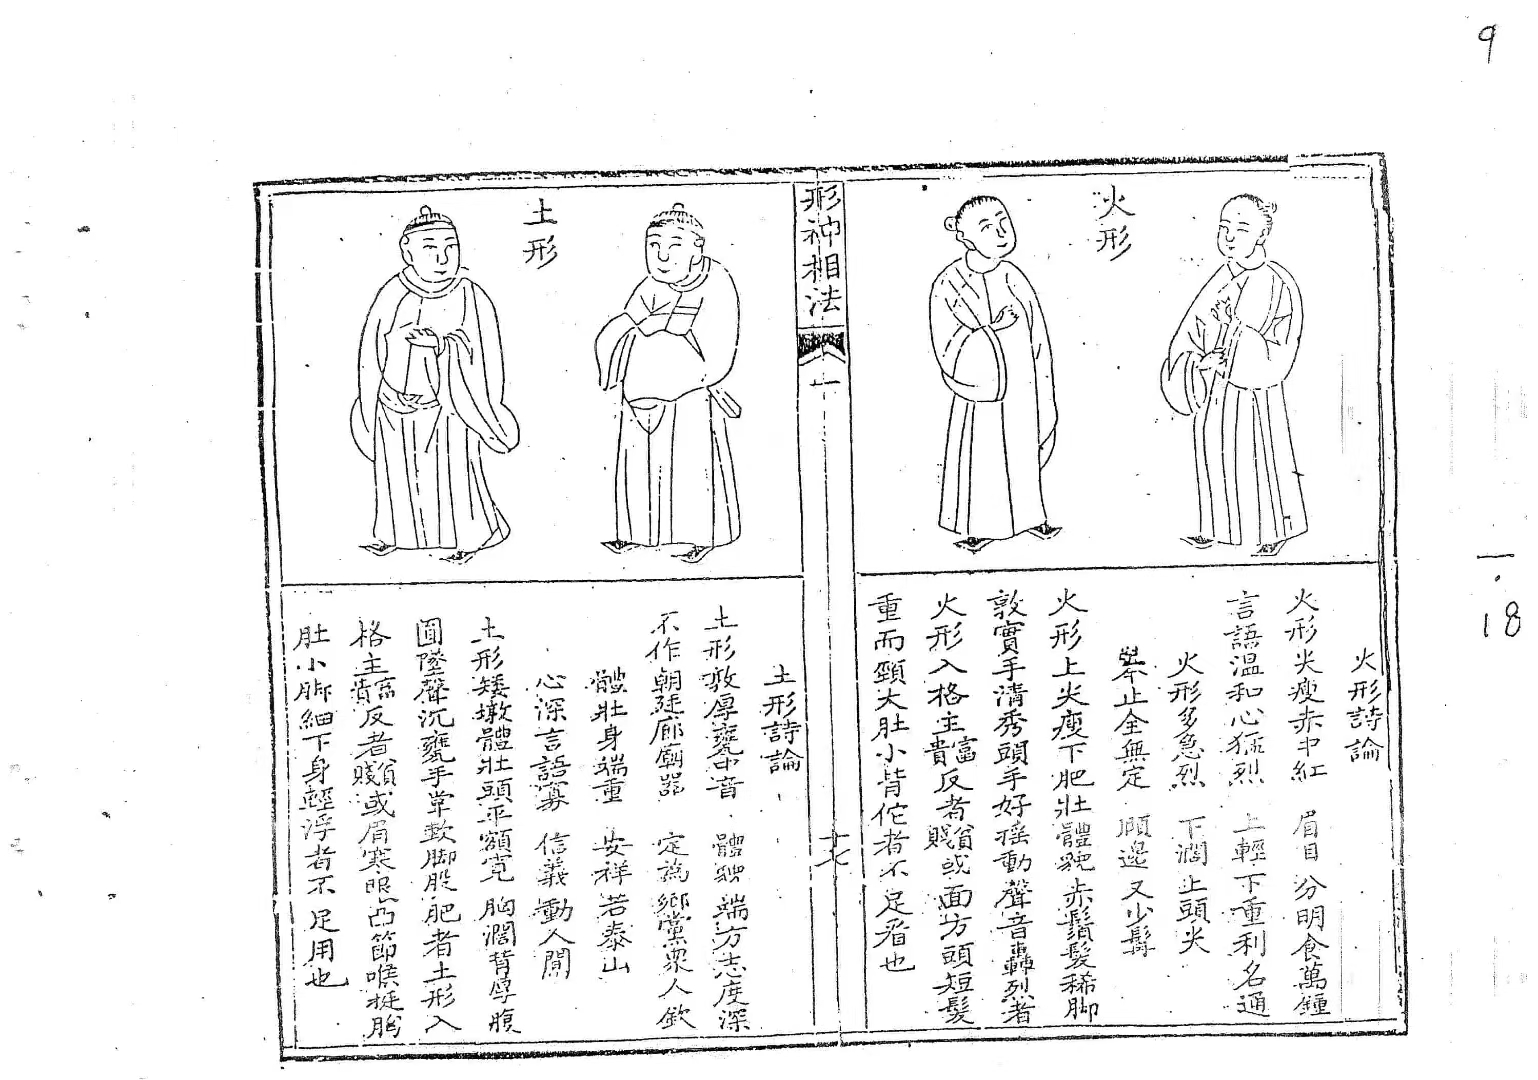 9
一
18
火形
火形詩論
火形尖瘦赤中紅　眉目分明食萬鍾
言語溫和心猛烈　上輕下重利名通
火形多急烈　下濶上頭尖
舉止全無定　頤邊又少髯
火形上尖瘦下肥壯體貌赤鬚髮稀脚
敦實手清秀頭手好搖動聲音轟烈者
火形入格主富貴反者貧賤或面方頭短髮
重而頸大肚小背佗者不足看也
形神相法
一
十七
土形
土形詩論
土形敦厚甕中音　體貌端方志度深
不作朝廷廊廟器　定為鄉黨衆人欽
體壯身端重　安祥若泰山
心深言語寡　信義動人間
土形矮墩體壯頭平額寬胸濶背厚腹
圓墜聲沉甕手掌軟脚股肥者土形入
格主富貴反者貧賤或眉寒眼凸節喉挺胸
肚小脚細下身輕浮者不足用也